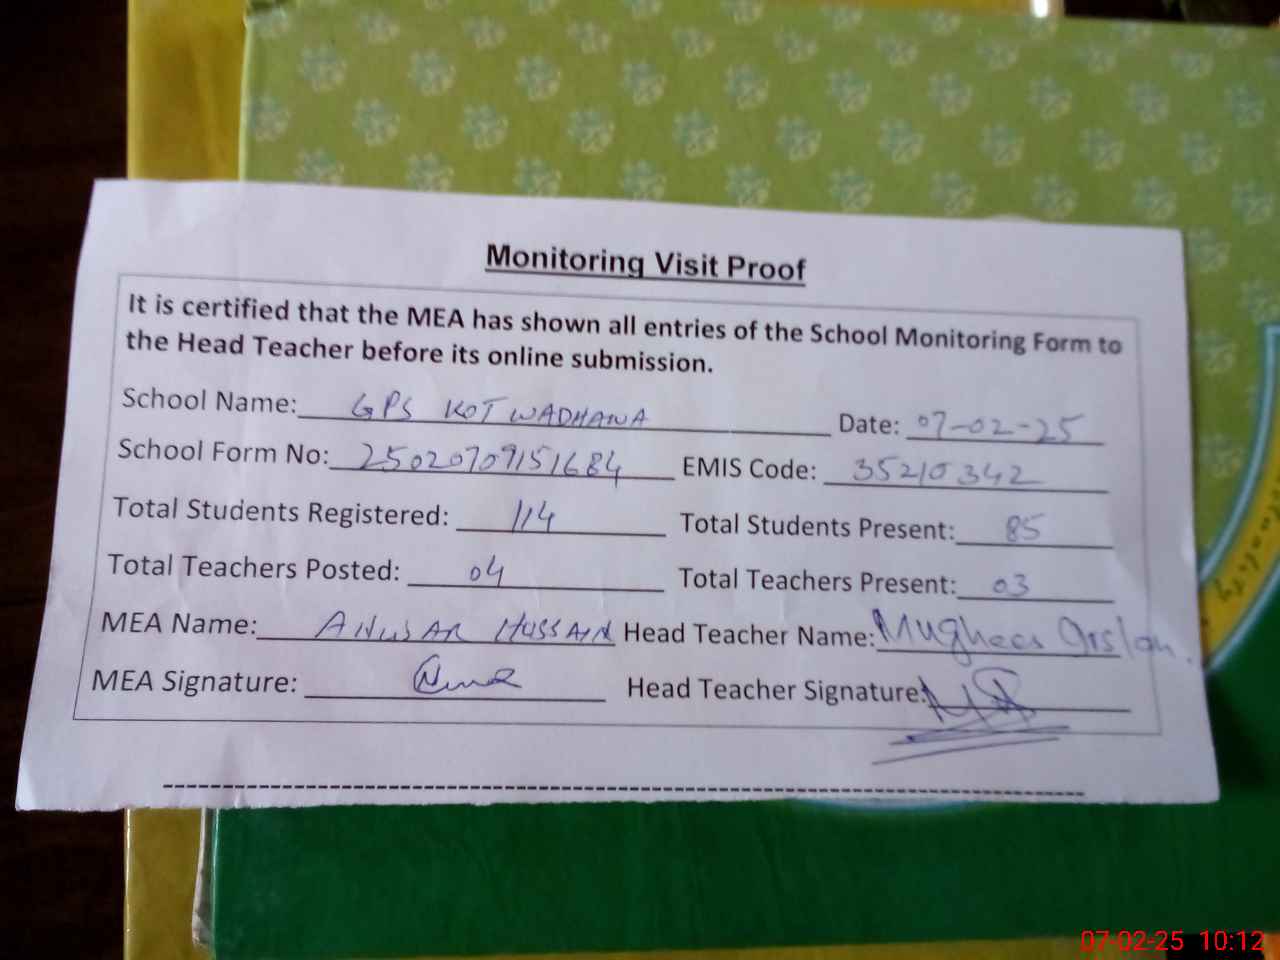 Monitoring Visit Proof
It is certified that the MEA has shown all entries of the School Monitoring Form to
the Head Teacher before its online submission.
School Name: GPS KOT WADHAWA Date: 07-02-25
School Form No: 25020709151684 EMIS Code: 35210342
Total Students Registered: 114 Total Students Present: 85
Total Teachers Posted: 04 Total Teachers Present: 03
MEA Name: ANWAR HUSSAIN Head Teacher Name: Mughees Arslan.
MEA Signature: Head Teacher Signature:
07-02-25 10:12